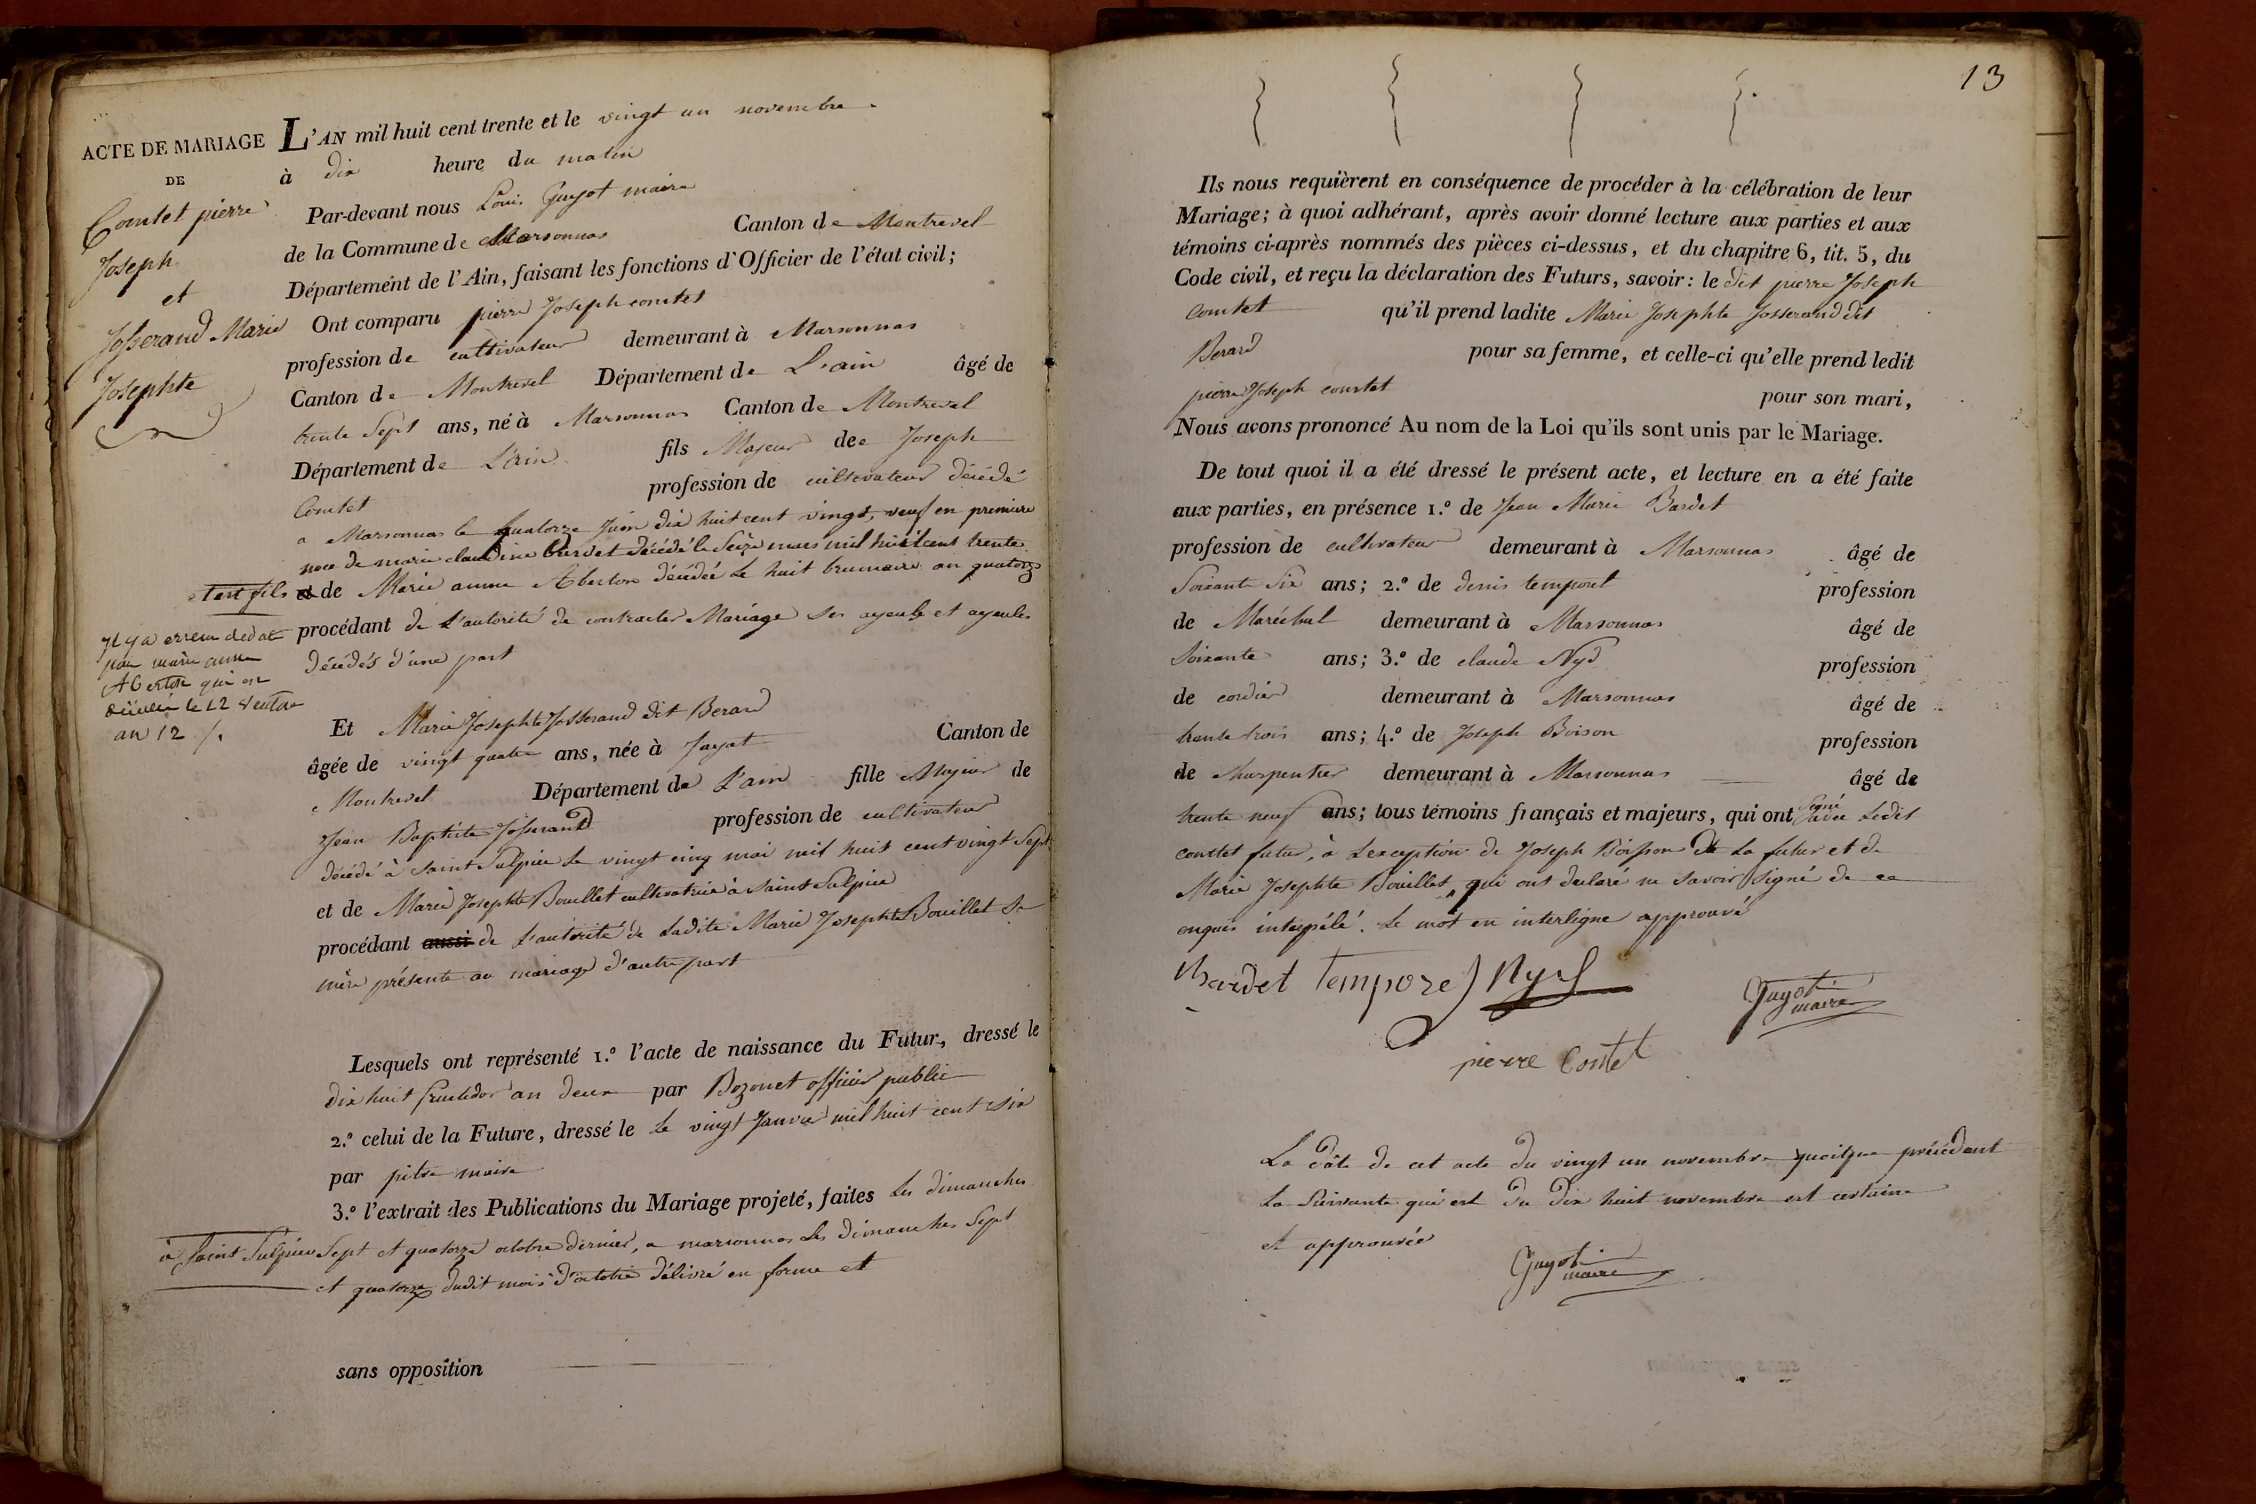 ACTE DE MARIAGE
DE
Comtet pierre
Joseph
et
Josserand Marie
Josephte
L'AN mil huit cent trente et le vingt un novembre
à dix heure du matin
Par-devant nous Louis Guyot maire
de la Commune de Marsonnas Canton de Montrevel
Département de l'Ain, faisant les fonctions d'Officier de l'état civil;
Ont comparu pierre Joseph comtet
profession de cultivateur demeurant à Marsonnas
Canton de Montrevel Département de L'ain âgé de
trente Sept ans, né à Marsonnas Canton de Montrevel
Département de L'ain fils Majeur de Joseph
Comtet profession de cultivateur décédé
a Marsonnas le quatorze Juin dix huit cent vingt, veuf en premiere
noce de marie claudine burdet décédé le Seize mars mil huit cent trente
est fils et de Marie anne Aberton décédée Le huit brumaire an quatorze
procédant de L'autorité de contracter Mariage Ses ayeuls et ayeules
décédés d'une part
Il y a erreur de date
pour marie anne
Aberton qui est
décédée le 12 ventose
an 12 /.
Et Marie Josephte Josserand dit Berard
âgée de vingt quatre ans, née à Jayat Canton de
Montrevel Département de L'ain fille Majeur de
Jean Baptiste Josserand profession de cultivateur
décédé à Saint Sulpice Le vingt cinq mai mil huit cent vingt Sept
et de Marie Josephte Bouillet cultivatrice à Saint Sulpice
procédant aussi de L'autorité de Ladite Marie Josephte Bouillet Sa
mère présente au mariage d'autre part
Lesquels ont représenté 1.º l'acte de naissance du Futur, dressé le
dix huit fructidor an deux par Bozonet officier public
2.º celui de la Future, dressé le Le vingt Janvier mil huit cent six
par pitre maire
3.º l'extrait des Publications du Mariage projeté, faites Les dimanches
à Saint Sulpice Sept et quatorze octobre dernier, a marsonnas Les dimanches Sept
et quatorze dudit mois d'octobre délivré en forme et
sans opposition
13
Ils nous requièrent en conséquence de procéder à la célébration de leur
Mariage; à quoi adhérant, après avoir donné lecture aux parties et aux
témoins ci-après nommés des pièces ci-dessus, et du chapitre 6, tit. 5, du
Code civil, et reçu la déclaration des Futurs, savoir: le dit pierre Joseph
comtet qu'il prend ladite Marie Josephte Josserand dit
Berard pour sa femme, et celle-ci qu'elle prend ledit
pierre Joseph comtet pour son mari,
Nous avons prononcé Au nom de la Loi qu'ils sont unis par le Mariage.
De tout quoi il a été dressé le présent acte, et lecture en a été faite
aux parties, en présence 1.º de Jean Marie Bardet
profession de cultivateur demeurant à Marsonnas âgé de
Soixante Six ans; 2.º de denis temporel profession
de Maréchal demeurant à Marsonnas âgé de
Soixante ans; 3.º de claude Nyd profession
de cordier demeurant à Marsonnas âgé de
trente trois ans; 4.º de Joseph Boison profession
de charpentier demeurant à Marsonnas âgé de
trente neuf ans; tous témoins français et majeurs, qui ont Signé avec Ledit
comtet futur, à Lexception de Joseph Boisson de La future et de
Marie Josephte Bouillet, qui ont declaré ne Savoir Signé de ce
enquis interpélé. Le mot en interligne approuvé
Bardet Temporel Nyd
Guyot
maire
pierre Comtet
La date de cet acte du vingt un novembre quoique précédant
La Suivante qui est du dix huit novembre est certaine
et approuvée
Guyot
maire